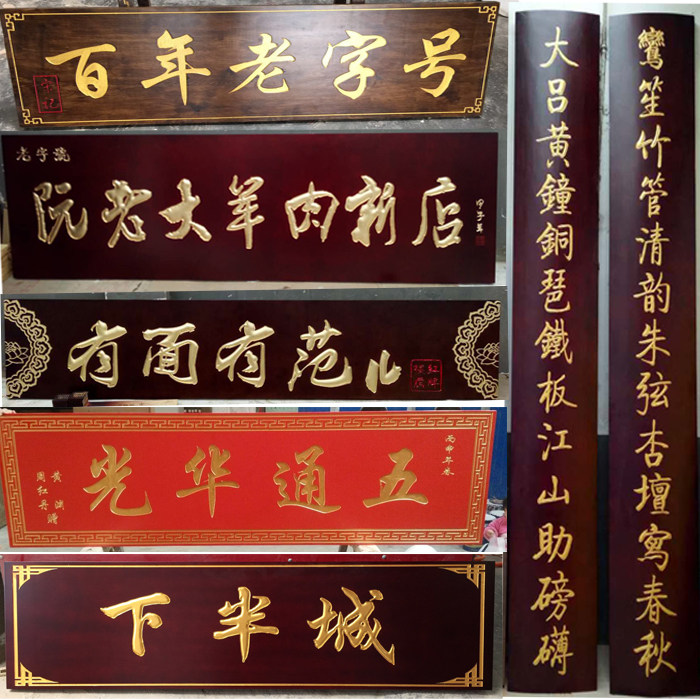 百年老字号
老字號
阮老大羊肉新店
有面有范儿
五通华光
下半城
鸞笙竹管清韵朱弦杏壇寫春秋
大吕黄鐘銅琶鐵板江山助磅礴